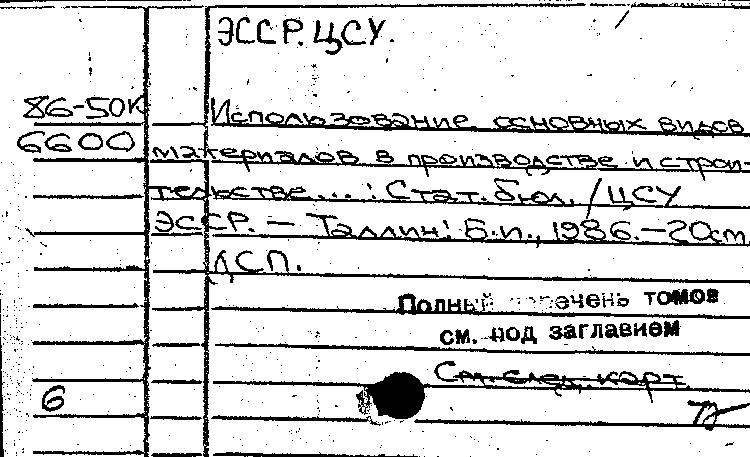 ЭССР. ЦСУ.
86-50к
6600
Использование основных видов
материалов в производстве и строи-
тельстве...: Стат. бюл. / ЦСУ
ЭССР. — Таллин: Б.и., 1986. — 20см.
ДСП.
Полный перечень томов
см. под заглавием
См. след. карт.
6